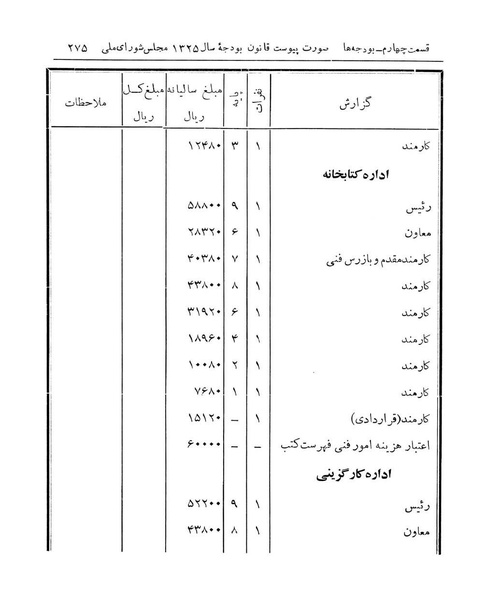 قسمت چهارم ـ بودجه‌ها صورت پیوست قانون بودجهٔ سال ۱۳۲۵ مجلس شورای ملی ۲۷۵
گزارش نفرات پایه مبلغ سالیانه ریال مبلغ کل ریال ملاحظات
کارمند ۱ ۳ ۱۲۴۸۰
اداره کتابخانه
رئیس ۱ ۹ ۵۸۸۰۰
معاون ۱ ۶ ۲۸۳۲۰
کارمند مقدم و بازرس فنی ۱ ۷ ۴۰۳۸۰
کارمند ۱ ۸ ۴۳۸۰۰
کارمند ۱ ۶ ۳۱۹۲۰
کارمند ۱ ۴ ۱۸۹۶۰
کارمند ۱ ۲ ۱۰۰۸۰
کارمند ۱ ۱ ۷۶۸۰
کارمند (قراردادی) ۱ ـ ۱۵۱۲۰
اعتبار هزینه امور فنی فهرست کتب ـ ـ ۶۰۰۰۰
اداره کارگزینی
رئیس ۱ ۹ ۵۲۲۰۰
معاون ۱ ۸ ۴۳۸۰۰